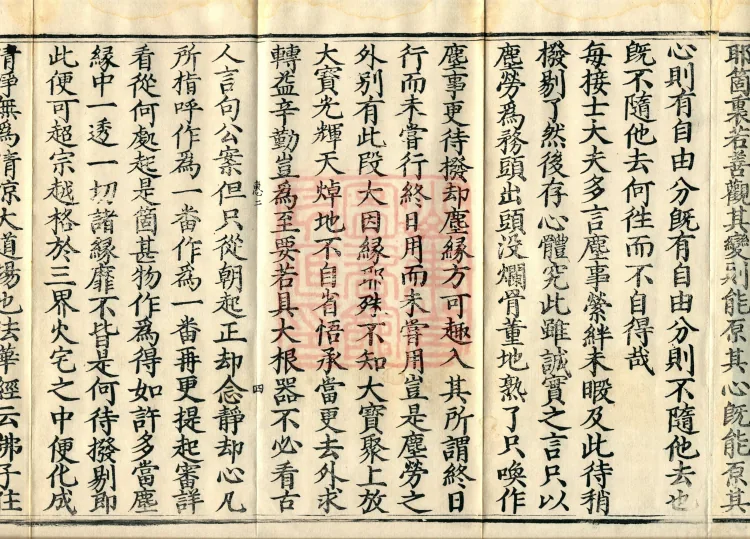 耶箇裏若善觀其變則能原其心既能原其
心則有自由分既有自由分則不隨他去也
既不隨他去何徃而不自得哉
每接士大夫多言塵事縈絆未暇及此待稍
撥剔了然後存心體究此雖誠實之言只以
塵勞爲務頭出頭没爛骨董地熟了只喚作
塵事更待撥却塵縁方可趣入其所謂終日
行而未嘗行終日用而未嘗用豈是塵勞之
外別有此段大因縁耶殊不知大寶聚上放
大寶光輝天焯地不自省悟承當更去外求
轉益辛勤豈爲至要若具大根器不必看古
二 四
人言句公案但只從朝起正却念靜却心凡
所指呼作爲一番作爲一番再更提起審詳
看從何處起是箇甚物作爲得如許多當塵
縁中一透一切諸縁靡不皆是何待撥剔即
此便可超宗越格於三界火宅之中便化成
清淨無爲清涼大道場也法華經云佛子住